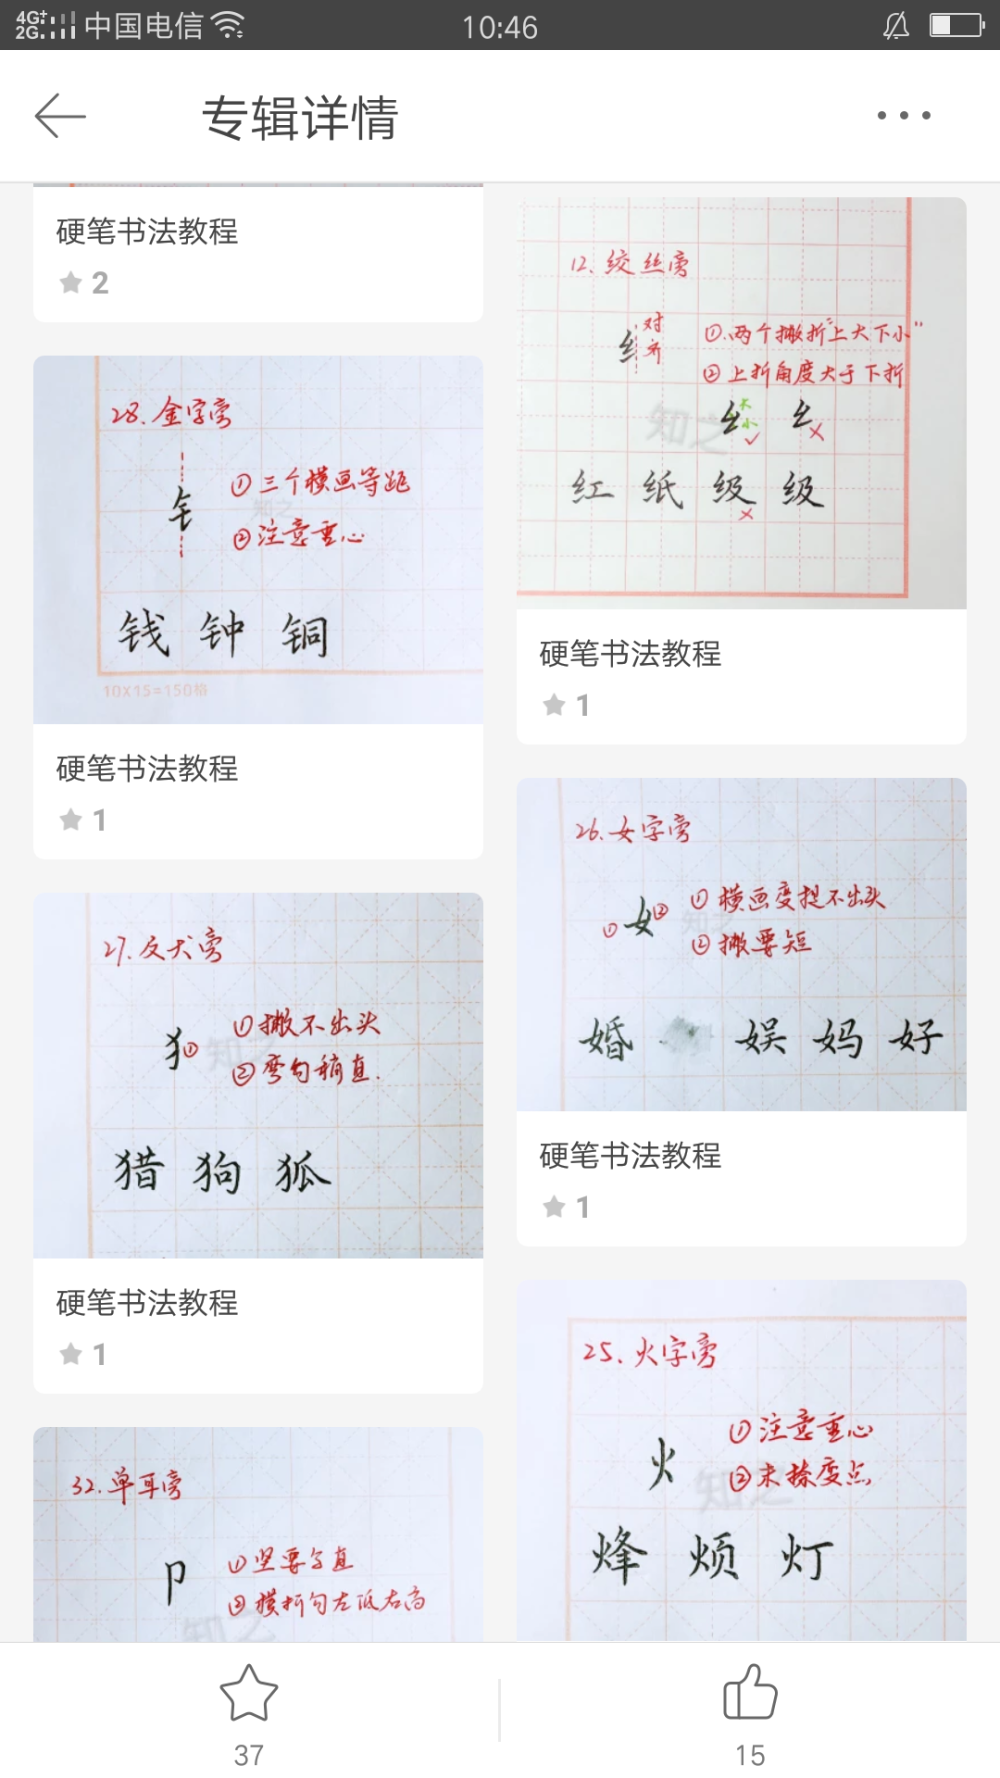 4G+ 2G 中国电信
10:46
专辑详情
硬笔书法教程
2
28.金字旁
①三个横画等距
②注意重心
钅
知之
钱 钟 铜
10X15=150格
硬笔书法教程
1
27.反犬旁
犭①
①撇不出头
②弯勾稍直.
知之
猎 狗 狐
硬笔书法教程
1
32.单耳旁
卩
①竖要写直
②横折勾左低右高
知之
12、绞丝旁
纟 对齐
①.两个撇折"上大下小"
②上折角度大于下折
知之
大
小
红 纸 级 级
硬笔书法教程
1
26.女字旁
①女②
①横画变提不出头
②撇要短
知之
婚 娱 妈 好
硬笔书法教程
1
25、火字旁
火
①注意重心
②末捺变点
知之
烽 烦 灯
37
15